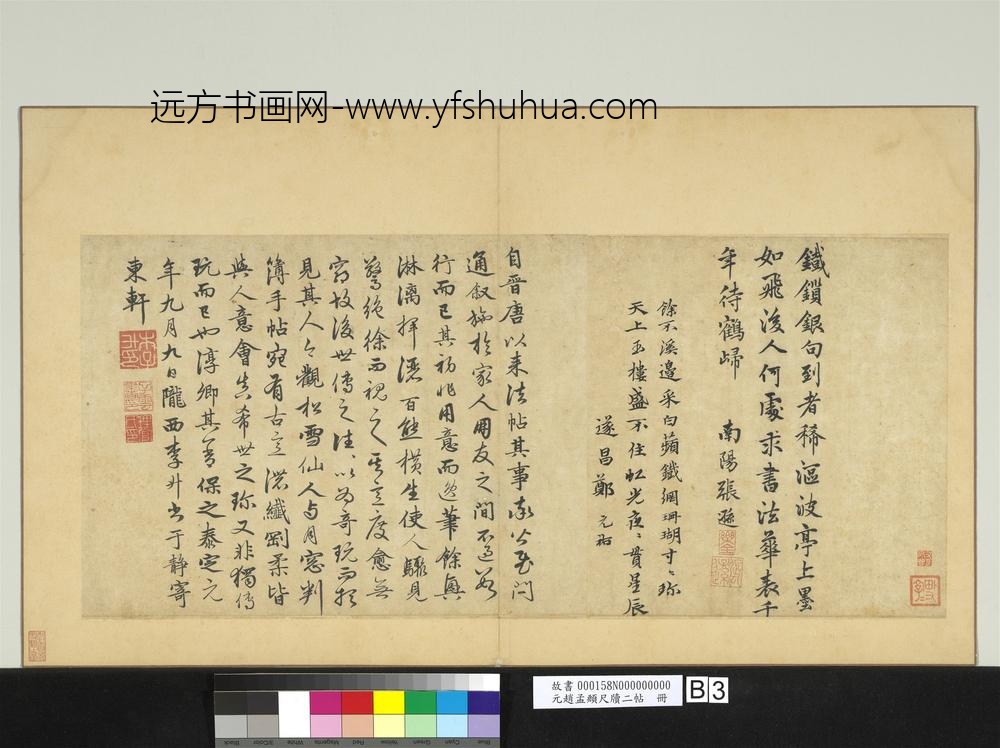 远方书画网-www.yfshuhua.com
鐵鎖銀句到者稀漚波亭上墨
如飛後人何處求書法華表千
年待鶴歸 南陽張遜
餘不溪邊采白蘋鐵網珊瑚寸〻珍
天上玉樓盛不住虹光夜〻貫星辰
遂昌鄭元祐
自晉唐以来法帖其事率
通叙施扵家人朋友之間不過數
行而已其初非用意而逸筆餘興
淋漓揮灑百態横生使人驟見
驚絶徐而視之意度愈無
窮故後世傳之以為奇玩而想
見其人今觀松雪仙人与月窓判
簿手帖宛有古意濃纖剛柔皆
與人意會真希世之珎又非獨傳
玩而已也淳卿其善保之泰定元
年九月九日隴西李升书于静寄
東軒
故書 000158N000000000
元趙孟頫尺牘二帖 冊
B3
Blue
Cyan
Green
Yellow
Red
Magenta
White
3/Color
Black